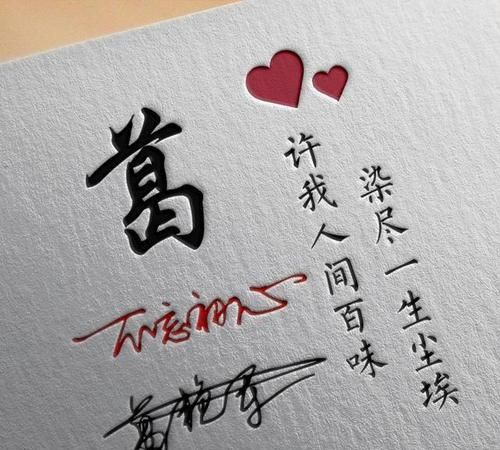 葛
许我人间百味
染尽一生尘埃
不忘初心
葛